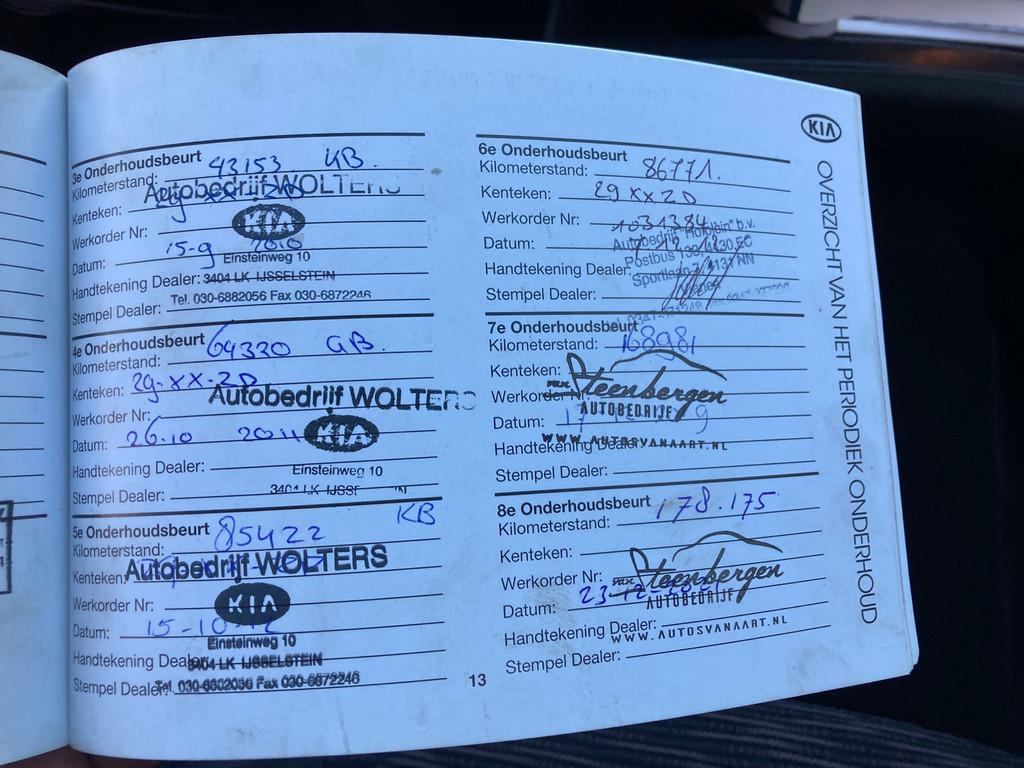 3e Onderhoudsbeurt
Kilometerstand: 43153 KB.
Autobedrijf WOLTERS
Kenteken: 29 XX ZD
KIA
Werkorder Nr:
Datum: 15-9 2010
Einsteinweg 10
Handtekening Dealer: 3404 LK IJSSELSTEIN
Stempel Dealer: Tel. 030-6882056 Fax 030-6872246
4e Onderhoudsbeurt
Kilometerstand: 64320 GB.
Kenteken: 29-XX-ZD
Autobedrijf WOLTERS
Werkorder Nr:
KIA
Datum: 26-10 2011
Handtekening Dealer: Einsteinweg 10
Stempel Dealer: 3404 LK IJSSELSTEIN
5e Onderhoudsbeurt 85422 KB
Kilometerstand:
Kenteken:
Autobedrijf WOLTERS
Werkorder Nr: KIA
Datum: 15-10-12
Einsteinweg 10
Handtekening Dealer: 3404 LK IJSSELSTEIN
Stempel Dealer: Tel. 030-6882056 Fax 030-6872246
13
6e Onderhoudsbeurt
Kilometerstand: 86771.
Kenteken: 29 XX ZD
Werkorder Nr: 1031384
Datum:
Autobedrijf b.v.
Handtekening Dealer:
Stempel Dealer:
7e Onderhoudsbeurt
Kilometerstand: 168981
Kenteken:
van Steenbergen
Werkorder Nr:
AUTOBEDRIJF
Datum: 17
Handtekening Dealer:
WWW.AUTOSVANAART.NL
Stempel Dealer:
8e Onderhoudsbeurt
Kilometerstand: 178.175
Kenteken:
van Steenbergen
Werkorder Nr:
AUTOBEDRIJF
Datum: 23-12-
Handtekening Dealer:
WWW.AUTOSVANAART.NL
Stempel Dealer:
KIA
OVERZICHT VAN HET PERIODIEK ONDERHOUD